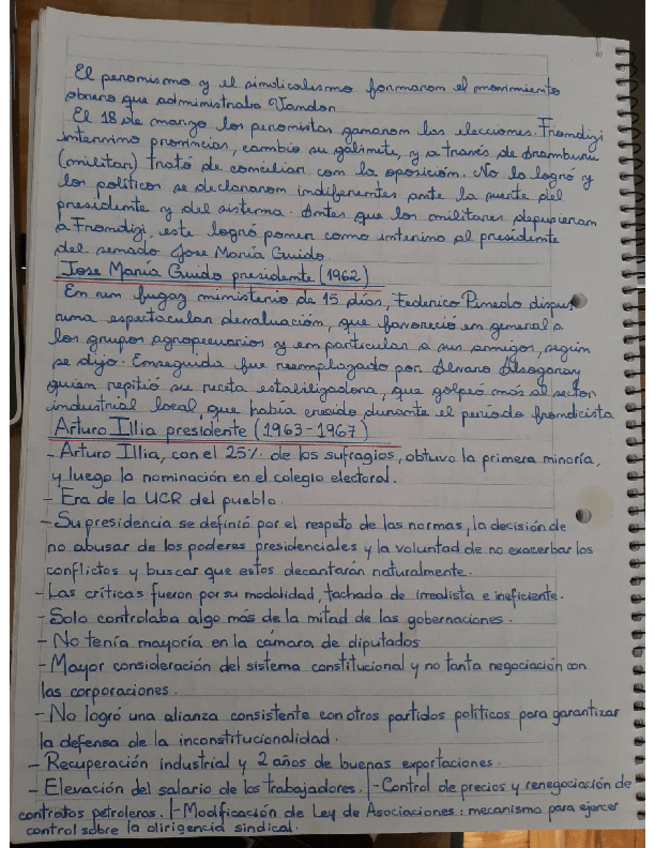 El peronismo y el sindicalismo formaron el movimiento
obrero que administraba Vandor
El 18 de marzo los peronistas ganaron las elecciones. Frondizi
intervino provincias, cambio su gabinete, y a través de Aramburu
(militar) trató de conciliar con la oposición. No lo logró y
los políticos se declararon indiferentes ante la suerte del
presidente y del sistema. Antes que los militares depusieran
a Frondizi, este logró poner como interino al presidente
del senado Jose María Guido.
Jose María Guido presidente (1962)
En un fugaz ministerio de 15 días, Federico Pinedo dispuso
una espectacular devaluación, que favoreció en general a
los grupos agropecuarios y en particular a sus amigos, según
se dijo. Enseguida fue reemplazado por Alvaro Alsogaray
quien repitió su receta estabilizadora, que golpeó más al sector
industrial local, que había crecido durante el periodo frondicista
Arturo Illia presidente (1963-1967)
- Arturo Illia, con el 25% de los sufragios, obtuvo la primera minoría,
y luego la nominación en el colegio electoral.
- Era de la UCR del pueblo.
- Su presidencia se definió por el respeto de las normas, la decisión de
no abusar de los poderes presidenciales y la voluntad de no exacerbar los
conflictos y buscar que estos decantarán naturalmente.
- Las críticas fueron por su modalidad, tachada de irrealista e ineficiente.
- Solo controlaba algo más de la mitad de las gobernaciones.
- No tenía mayoría en la cámara de diputados
- Mayor consideración del sistema constitucional y no tanta negociación con
las corporaciones.
- No logró una alianza consistente con otros partidos políticos para garantizar
la defensa de la inconstitucionalidad.
- Recuperación industrial y 2 años de buenas exportaciones.
- Elevación del salario de los trabajadores. |- Control de precios y renegociación de
contratos petroleros. |- Modificación de Ley de Asociaciones: mecanismo para ejercer
control sobre la dirigencia sindical.